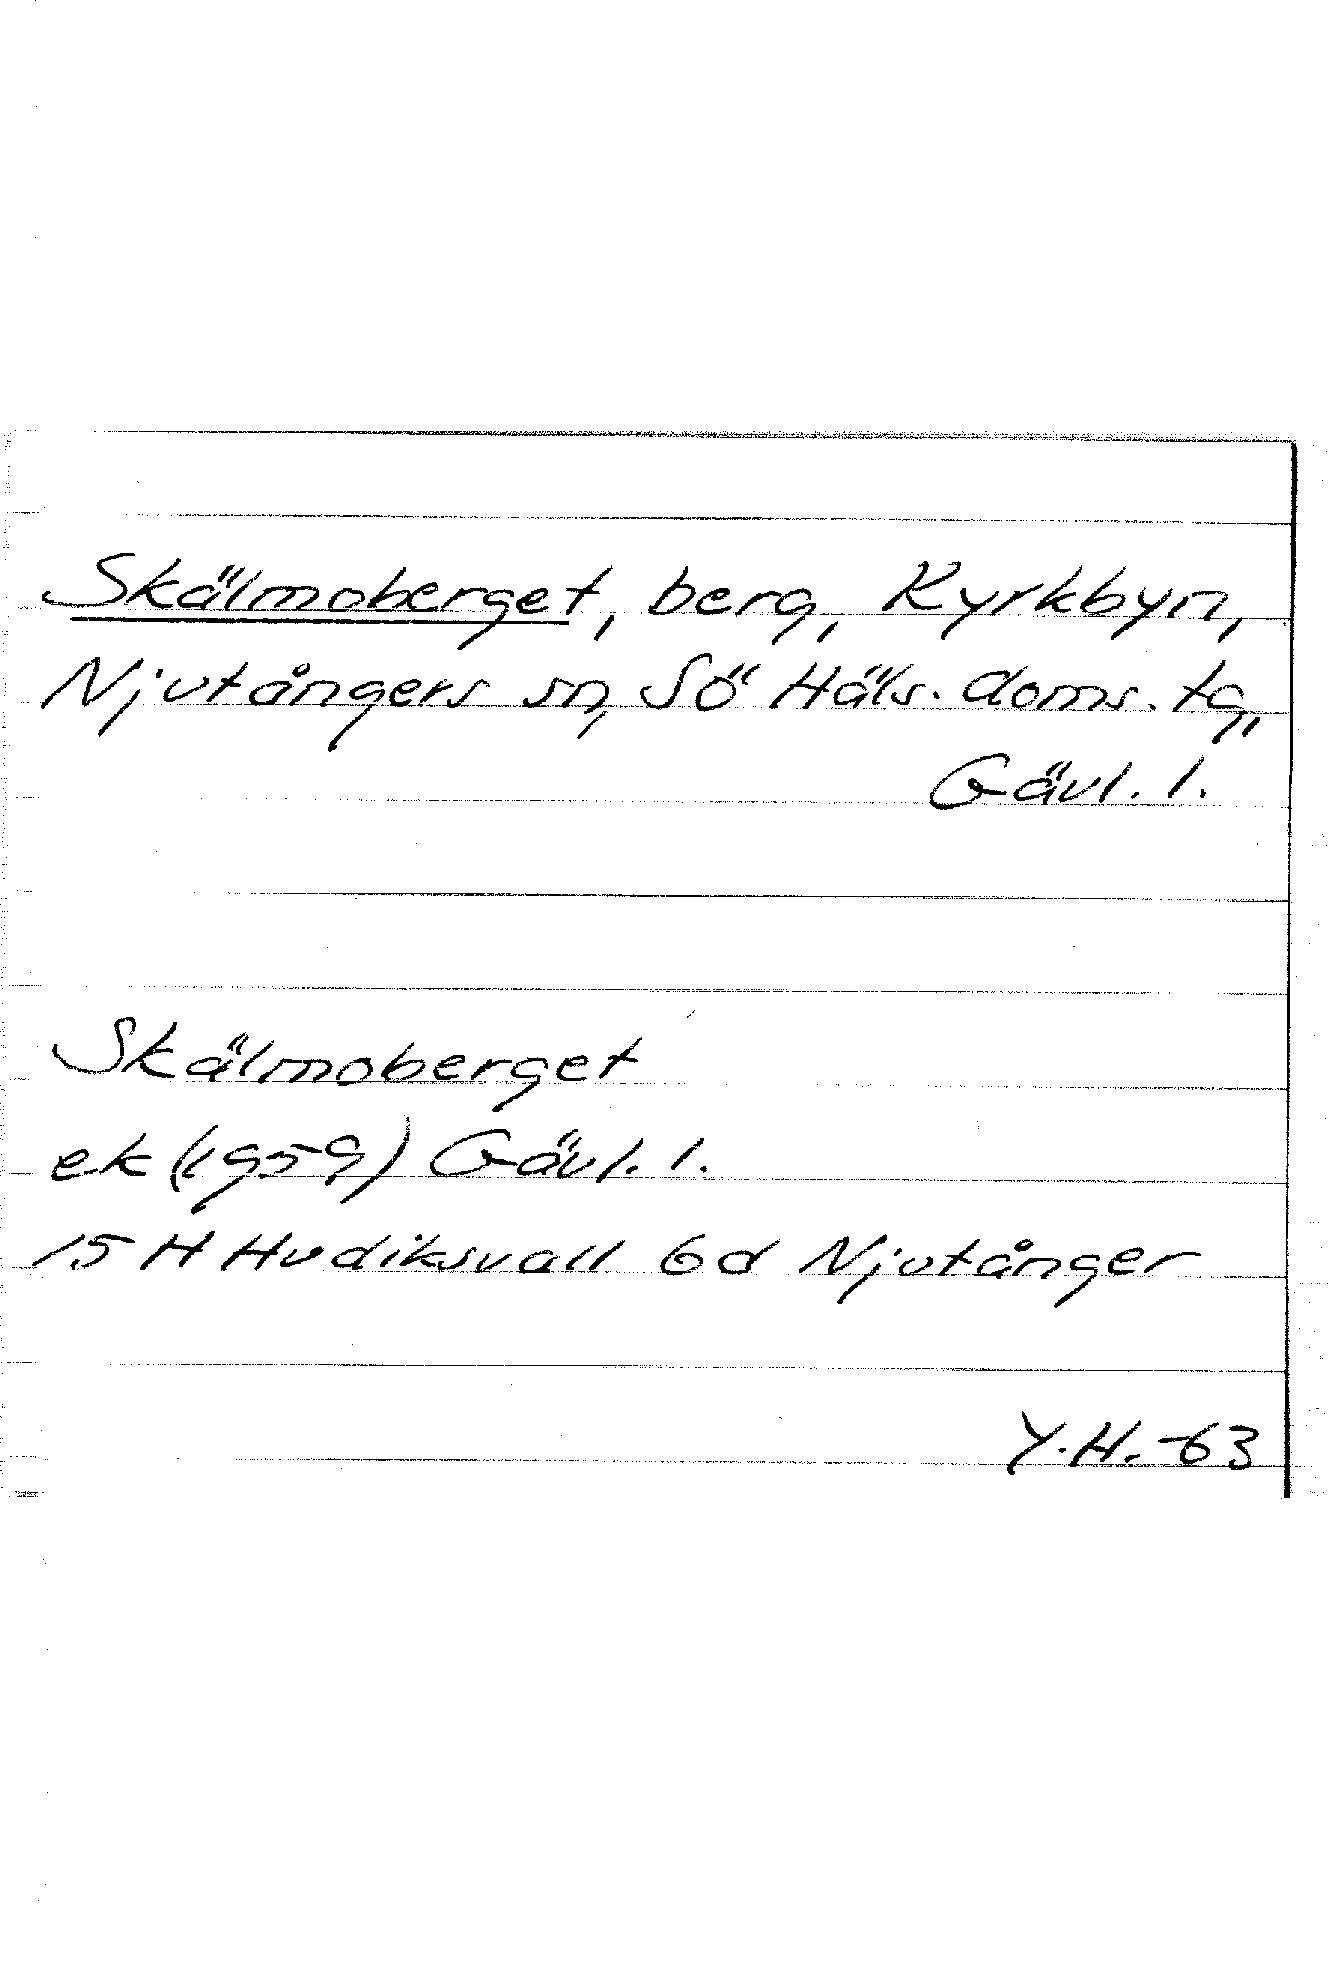 Skälmoberget, berg, Kyrkbyn,
Njutångers sn, Sö Häls. doms. tg,
Gävl. l.
Skälmoberget
ek (1959) Gävl. l.
15 H Hudiksvall 6d Njutånger
Y.H.-63